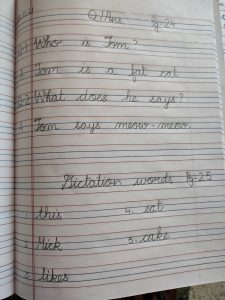 Q/Ans Pg-24
Who is Tom?
Tom is a fat cat
What does he says?
Tom says meow-meow.
Dictation words Pg-25
1. this 4. eat
2. Mick 5. cake
3. likes